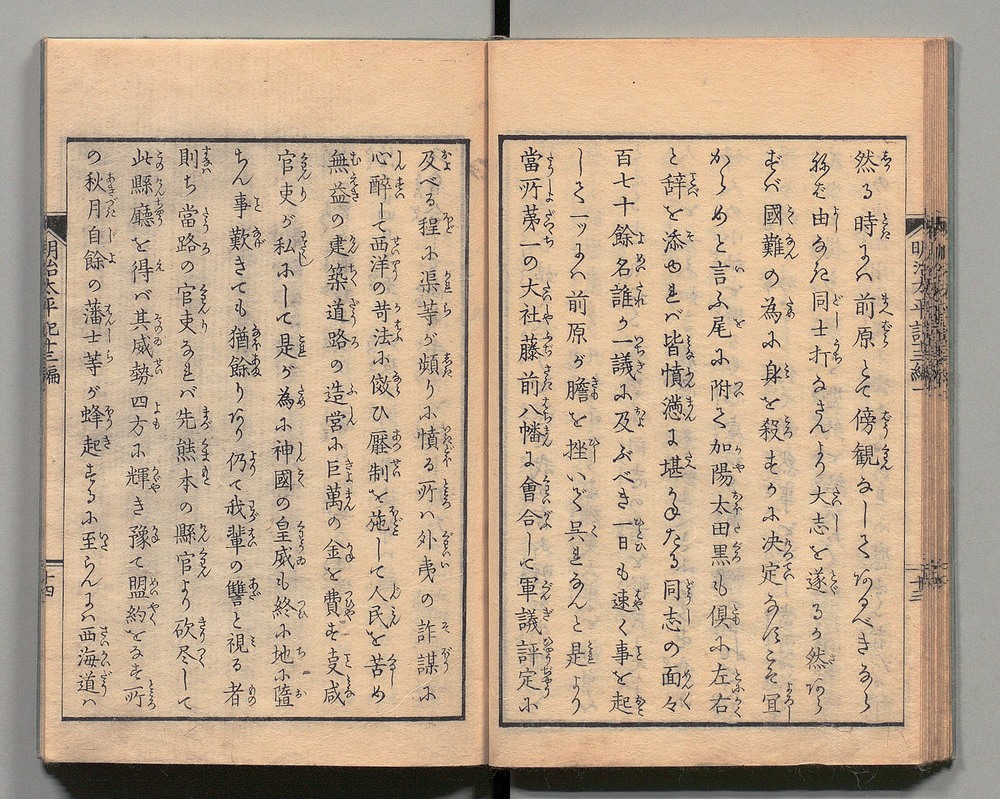 然る時にハ前原とて傍観なしてハあるべきなら
ねど由なき同士打なさんより大志を遂るが然あら
ずバ國難の為に身を殺すか决定なすこそ冝
からめと言ふ尾に附て加陽太田黒も倶に左右
と辞を添ゆれバ皆憤懣に堪かねたる同志の面々
百七十餘名誰か一議に及ぶべき一日も速く事を起
して一ツにハ前原が膽を挫いで呉れなんと是より
當所第一の大社藤前八幡に會合して軍議評定に
明治太平記十三編一
十三
及べる程に渠等が頻りに憤る所ハ外夷の詐謀に
心醉して西洋の苛法に傚ひ壓制を施して人民を苦め
無益の建築道路の造営に巨萬の金を費す支咸
官吏が私にして是が為に神國の皇威も終に地に墮
ちん事歎きても猶餘りあり仍て我輩の讐と視る者
則ち當路の官吏なれバ先熊本の縣官より砍尽して
此縣廳を得バ其威勢四方に輝き豫て盟約をなす所
の秋月自餘の藩士等が蜂起するに至らんにハ西海道ハ
明治太平記十三編一
十四